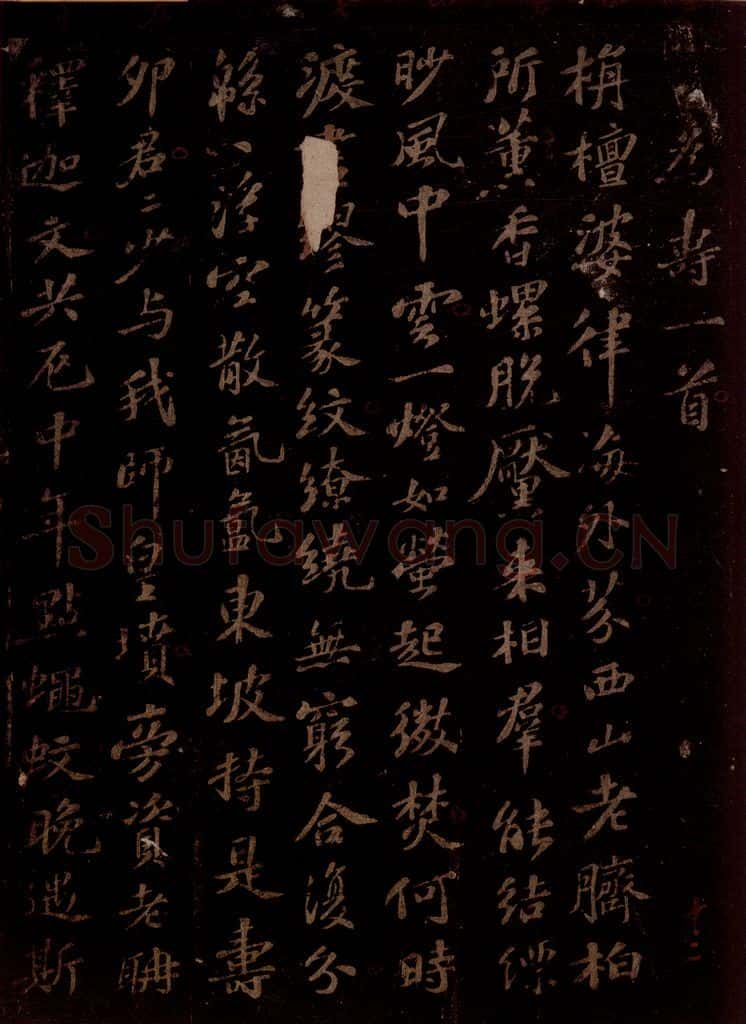 為壽一首
栴檀婆律海外芬西山老臍柏
所薰香螺脫黶来相羣能結縹
眇風中雲一燈如螢起微焚何時
渡繆篆紋繚繞無窮合復分
緜〻浮空散氤氳東坡持是壽
卯君〻少与我師皇墳旁資老聃
釋迦文共厄中年點蠅蚊晚遇斯
十二
Shufawang.CN